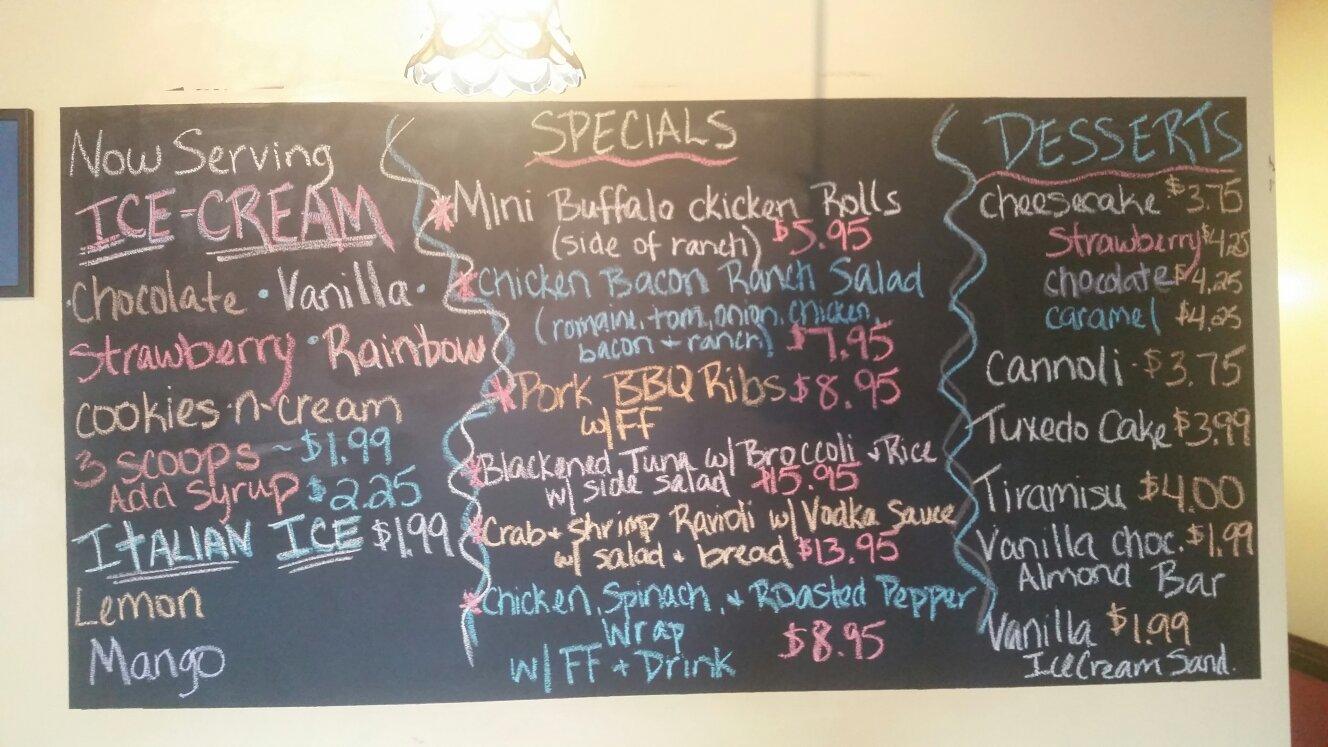 Now Serving
ICE-CREAM
·Chocolate · Vanilla ·
Strawberry · Rainbow
cookies·n·cream
3 scoops ~ $1.99
Add syrup $2.25
ITALIAN ICE $1.99
Lemon
Mango
SPECIALS
*Mini Buffalo chicken Rolls
(side of ranch) $5.95
*Chicken Bacon Ranch Salad
(romaine, tom, onion, chicken,
bacon + ranch) $7.95
*Pork BBQ Ribs $8.95
w/ FF
*Blackened Tuna w/ Broccoli + Rice
w/ side salad $15.95
*Crab + shrimp Ravioli w/ Vodka Sauce
w/ salad + bread $13.95
*Chicken, Spinach, + Roasted Pepper
Wrap $8.95
w/ FF + Drink
DESSERTS
cheesecake $3.75
Strawberry $4.25
chocolate $4.25
caramel $4.25
Cannoli · $3.75
Tuxedo Cake $3.99
Tiramisu $4.00
Vanilla choc. $1.99
Almond Bar
Vanilla $1.99
Ice Cream Sand.